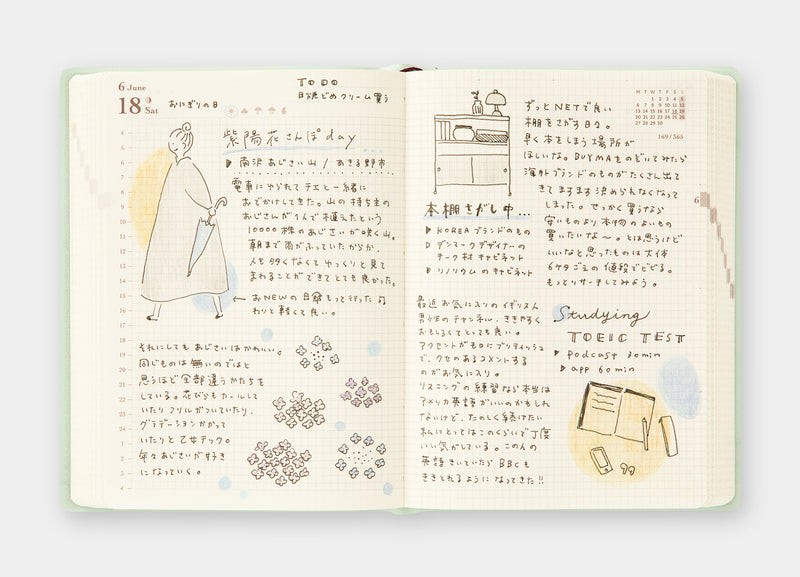 6 June
18 Sat
おにぎりの日
TO DO
日焼どめクリーム買う
紫陽花さんぽday
南沢あじさい山 / あきる野市
電車にゆられてチエと一緒に
おでかけしてきた。山の持ち主の
おじさんが1人で植えたという
10000株のあじさいが咲く山。
朝まで雨がふっていたからか、
人も多くなくてゆっくりと見て
まわることができてとても良かった。
← おNEWの日傘もって行った♫
わりと軽くて良い。
それにしてもあじさいはかわいい。
同じものは無いのではと
思うほど全部違うかたちを
している。花びらもカールして
いたりフリルがついていたり、
グラデーションかかって
いたりと乙女チック。
年々あじさいが好き
になっていく。
4
5
6
7
8
9
10
11
12
13
14
15
16
17
18
19
20
21
22
23
24
1
2
3
4
本棚さがし中...
KOREAブランドのもの
デンマークデザイナーの
チーク材キャビネット
リノリウムのキャビネット
ずっとNETで良い
棚をさがす日々。
早く本をしまう場所が
ほしいな。BUYMAものぞいてみたら
海外ブランドのものがたくさん出て
きてますます決められなくなって
しまった。せっかく買うなら
安いものより本物のよいもの
買いたいな〜。とは思うけど
いいなと思ったものは大体
6ケタごえの値段でビビる。
もっとリサーチしてみよう。
M T W T F S S
1 2 3 4 5
6 7 8 9 10 11 12
13 14 15 16 17 18 19
20 21 22 23 24 25 26
27 28 29 30
169/365
6
最近お気に入りのイギリス人
男性のチャンネル、ききやすく
おもしろくてとっても良い。
アクセントがもろにブリティッシュ
で、クセのあるコメントする
のがお気に入り。
リスニングの練習なら本当は
アメリカ英語がいいのかもしれ
ないけど、たのしく続けたい
私にとってはこのくらいで丁度
いい気がしている。この人の
英語きいていたらBBCも
ききとれるようになってきた!!
Studying
TOEIC TEST
podcast 30min
app 60min